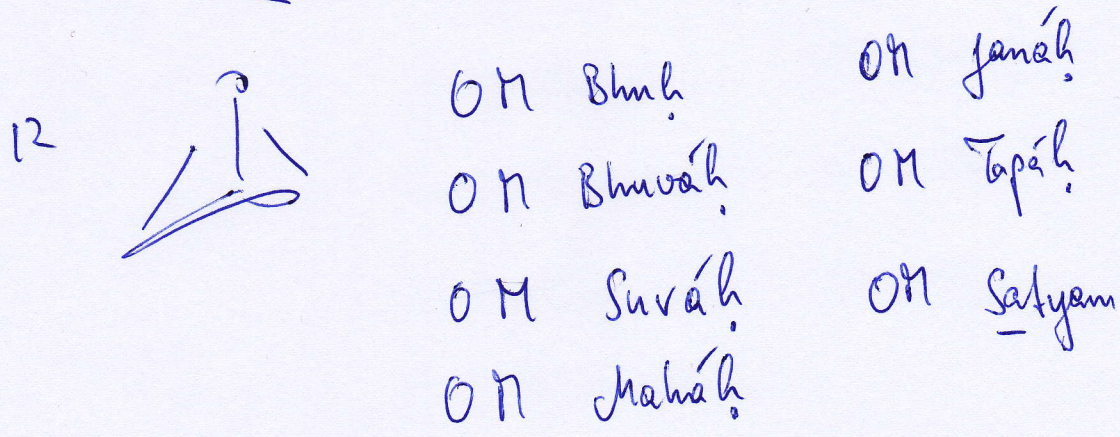 12
OM Bhuḥ
OM Bhuváḥ
OM Suváḥ
OM Maháḥ
OM Janáḥ
OM Tapáḥ
OM Satyam